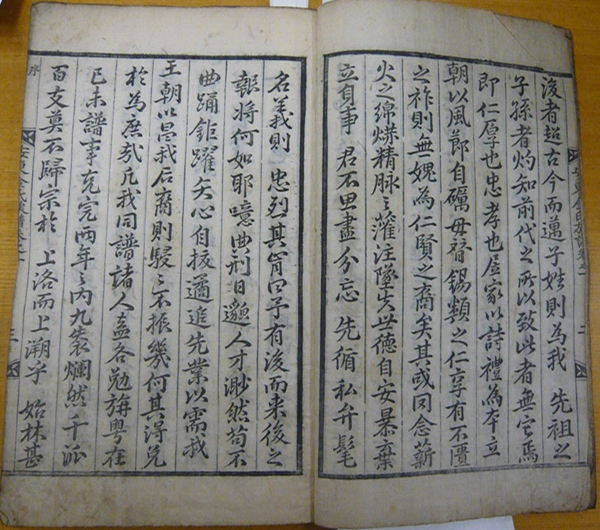 後者超古今而邁子姓則為我 先祖之
子孫者灼知前代之所以致此者無它焉
即仁厚也忠孝也居家以詩禮為本立
朝以風節自礪毋替錫類之仁享有不匱
之祚則無愧為仁賢之裔矣其或罔念薪
火之綿爀精脉之灌注墜失世德自安暴棄
立身事 君不思盡分忘 先循私弁髦
二
名義則 忠烈其肯曰予有後而來後之
報將何如耶噫典刑日邈人才渺然苟不
曲踊距躍矢心自挍遹追先業以需我
王朝以恩我后裔則駸駸不振幾何其得免
於為庶㢤凡我同譜諸人盍各勉旃粵在
己未譜事克完兩年之內九袠爛然千派
百支莫不歸宗於 上洛而上溯乎 始林甚
序
三